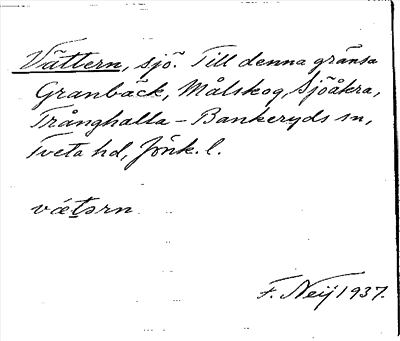 Vättern, sjö. Till denna gränsa
Granbäck, Målskog, Sjöåkra,
Trånghalla – Bankeryds sn,
Tveta hd, Jönk. l.
vætərn
F. Neij 1937.